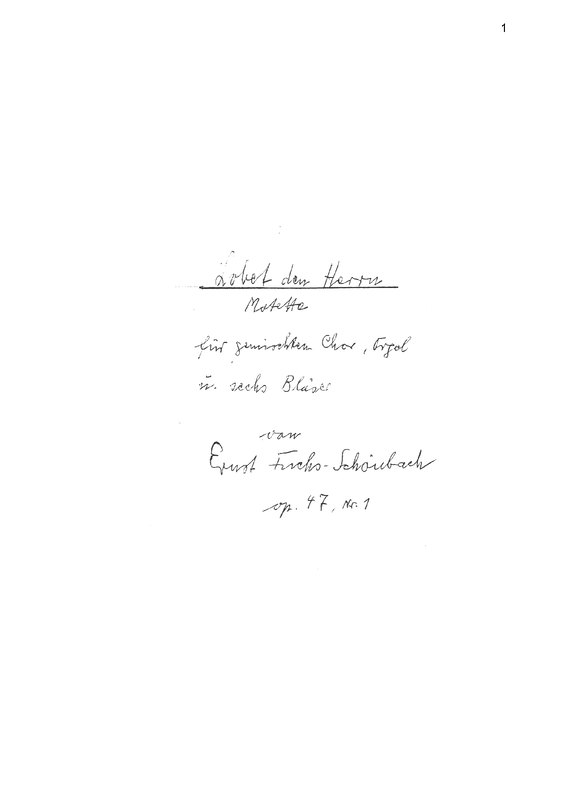 1
Lobet den Herrn
Motette
für gemischten Chor, Orgel
u. sechs Bläser
von
Ernst Fuchs-Schönbach
op. 47, Nr. 1